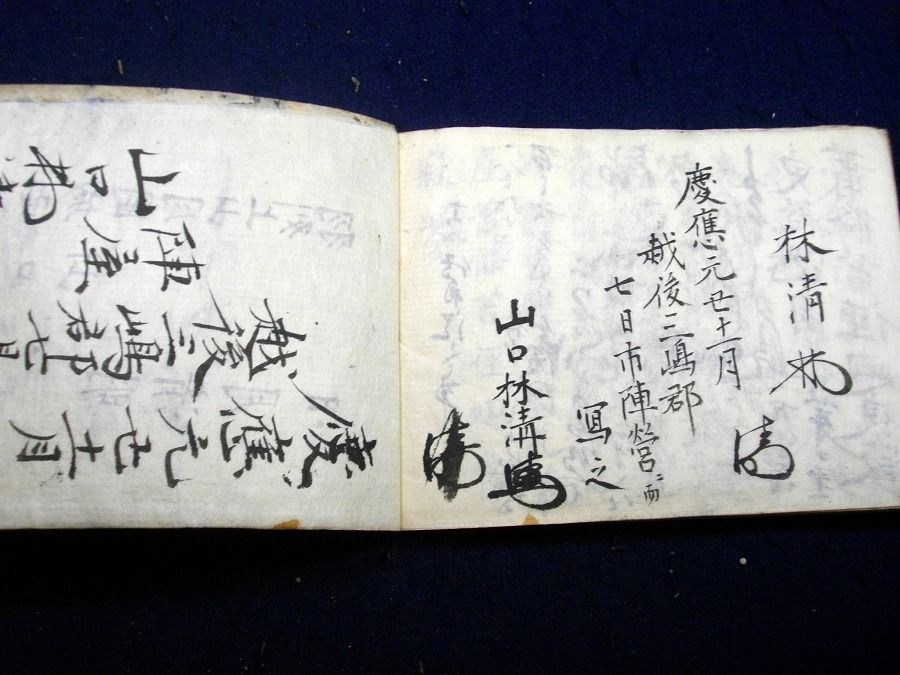 林清
慶應元丑十一月
越後三嶋郡
七日市陣營ニ而
寫之
山口林清
慶應元丑十一月
越後三嶋郡七日
陣屋
山口林